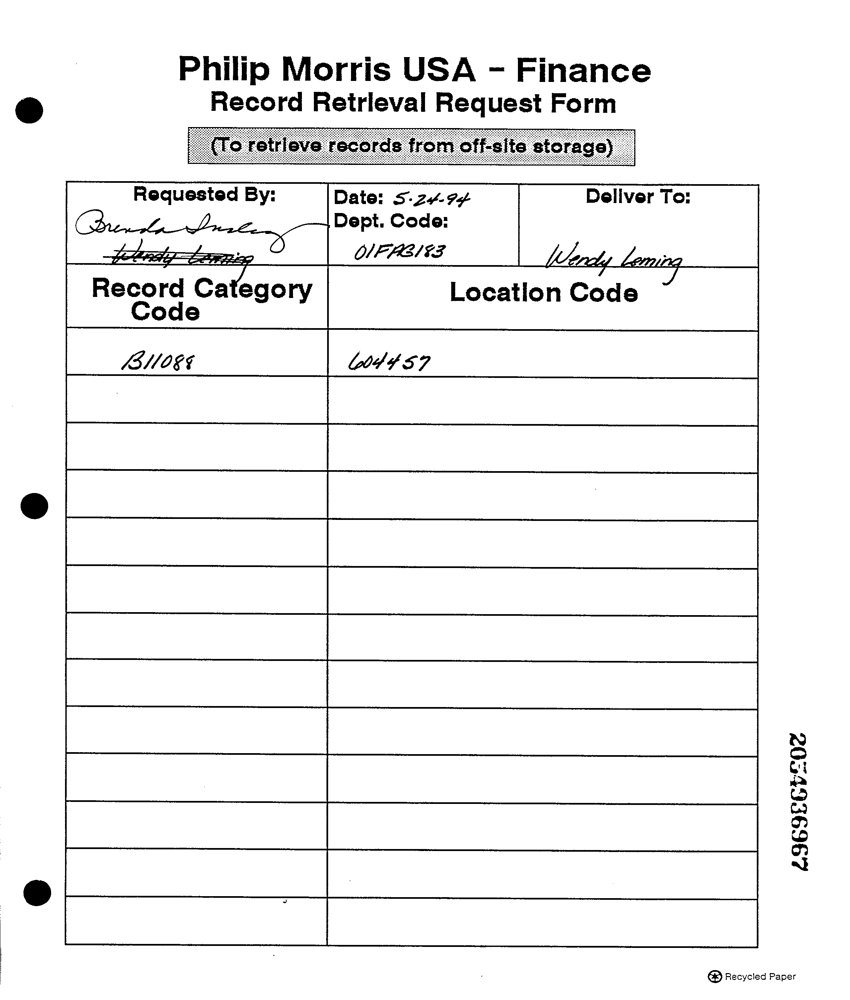 Philip Morris USA - Finance
Record Retrieval Request Form
(To retrieve records from off-site storage)
Requested By:
Brenda
Wendy Leming
Date: 5-24-94
Dept. Code:
01FAB183
Deliver To:
Wendy Leming
Record Category Code
Location Code
B11088
604457
2054936967
Recycled Paper